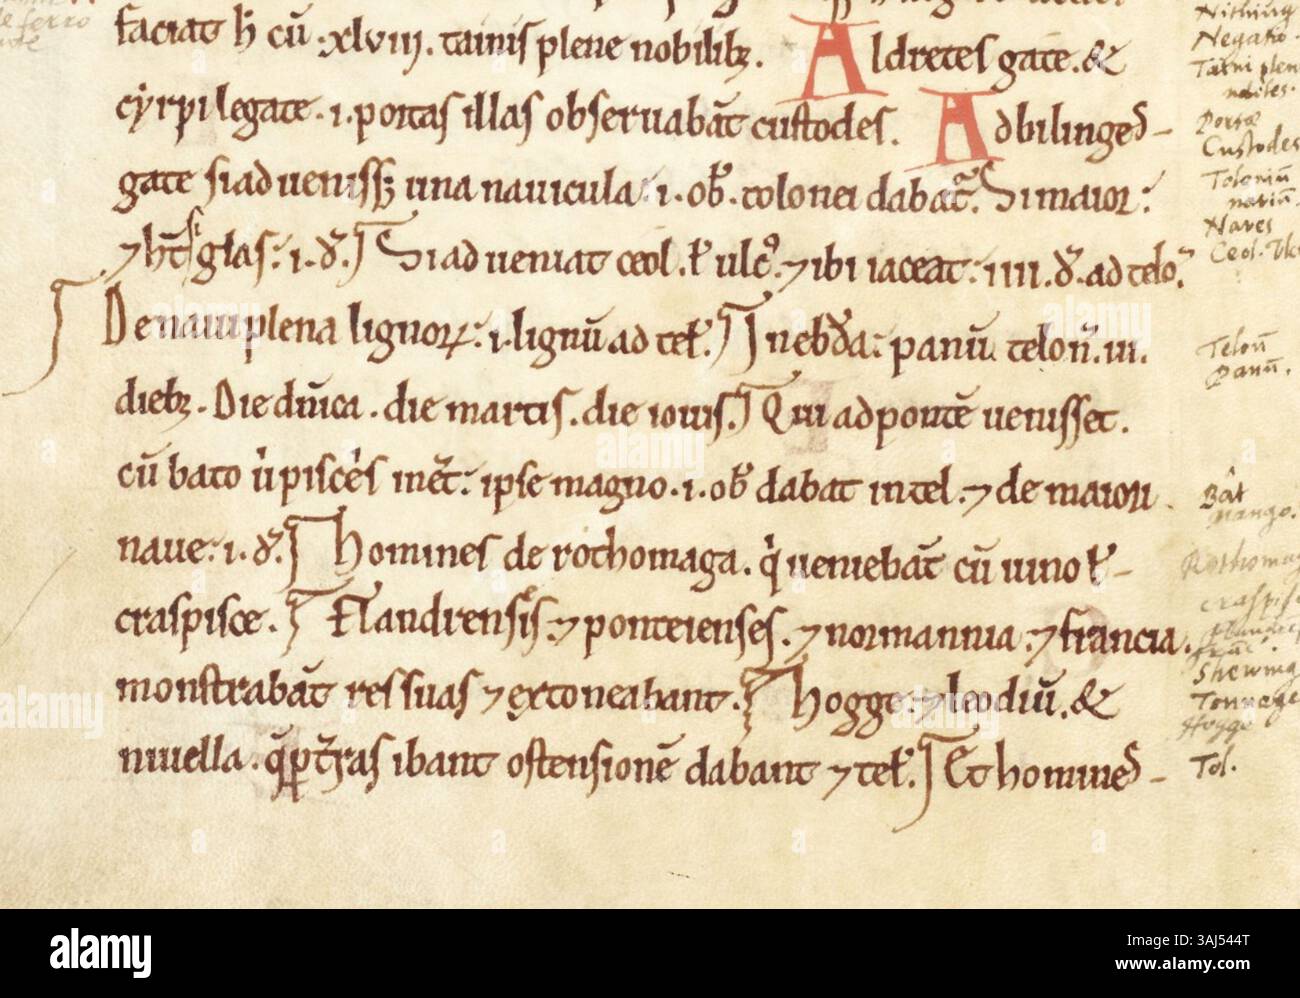 faciat h̄ cū .xlviii. tainis plene nobilibꝫ. Aldretesgate. &
cyrpilegate. i. portas illas obseruabāt custodes. Adbilinged-
gate si aduenissꝫ una nauicula: i. ob̄. tolonei dabat̄. Si maior:
⁊ ht̄ : i. đ. Si adueniat ceol. ł ulcꝰ. ⁊ ibi iaceat: iiii. đ. ad telo.
De naui plena lignoꝝ: i. lignū ad teł. In ebđa: panū telon̄. iii.
diebꝫ. Die dn̄ica. die martis. die iouis. Qui ad pontē uenisset.
cū bato ipse magno. i. ob̄ dabat in tel. ⁊ de maiori
naue: i. đ. Homines de rothomago. q̇ ueniebāt cū uino ł-
craspisce. Flandrenses. ⁊ ponteienses. ⁊ normannia. ⁊ francia.
monstrabāt res suas ⁊ extoneabant. Hogge. ⁊ leodiū. &
niuella. ibant ostensionē dabant ⁊ teł. Et homined-
Nithing
Negatio.
Taini plen
nobiles.
Portæ
Custodes
Toloniū
Naves
Ceol.
Telon̄
Panū.
Bât
magno.
Rothoma
craspis
Shewing
Tonnage
Hogge
Tol.
alamy
alamy
Image ID: 3AJ544T
www.alamy.com